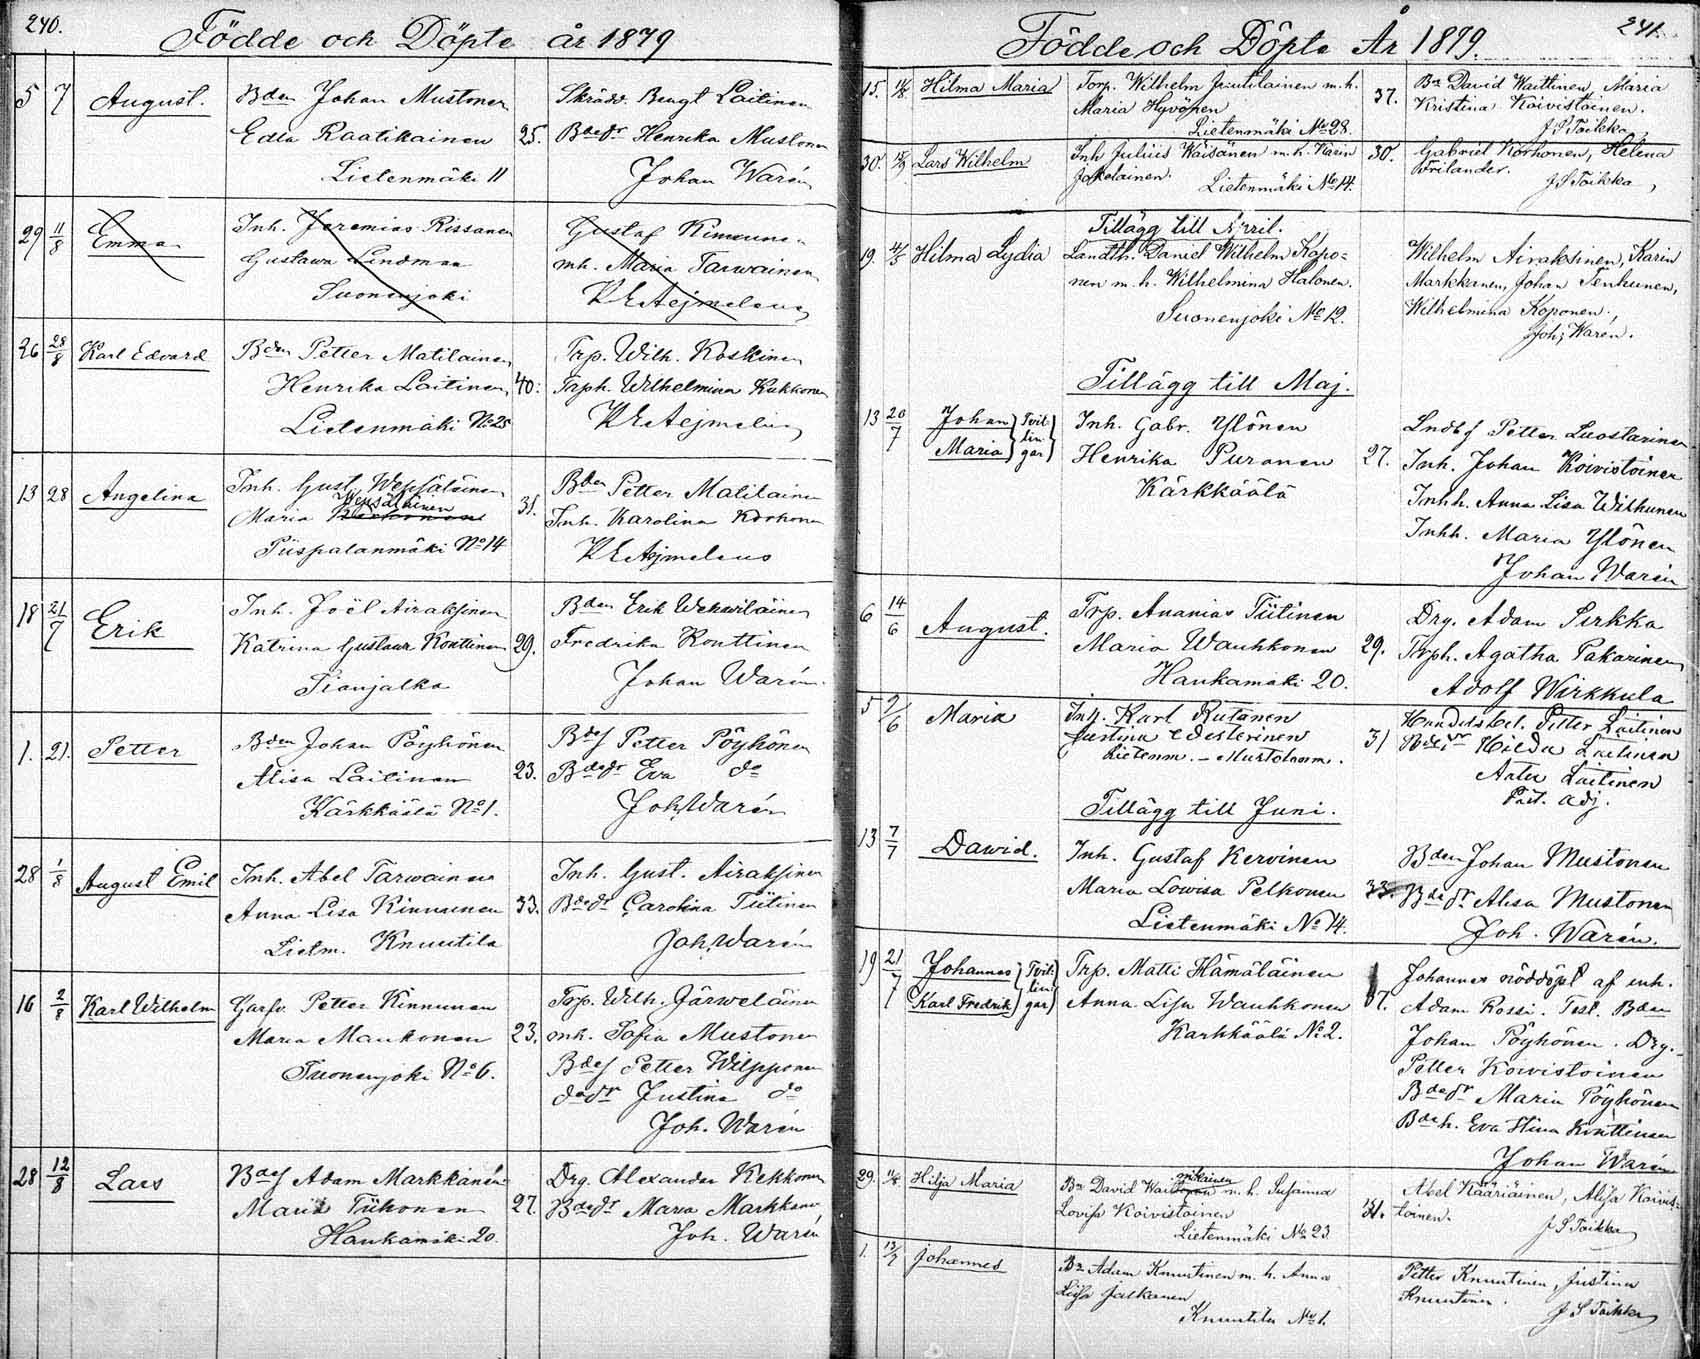 240.
Födde och Döpte år 1879
5 7 August. Bden Johan Mustonen Skrädd. Bengt Laitinen
Edla Raatikainen 25. Bdedr Henrika Mustonen
Lietenmäki 11 Johan Warén
29 11/8 Emma Inh. Jeremias Rissanen Gustaf Kinnunen
Gustawa Lindman mh. Maria Tarwainen
Suonenjoki K E Aejmelaus
26 28/8 Karl Edvard Bden Petter Matilainen Trp. Wilh. Koskinen
Henrika Laitinen 40. Trph. Wilhelmina Kukkonen
Lietenmäki No 25 K E Aejmelaus
13 28 Angelina Inh. Gust. Wepsäläinen Bden Petter Matilainen
Maria Wepsäläinen 31. Inh. Karolina Korhonen
Piispalanmäki No 14 K E Aejmelaus
18 21/7 Erik Inh. Joël Airaksinen Bden Erik Wehwiläinen
Katrina Gustava Konttinen 29. Fredrika Konttinen
Johan Warén.
1. 21. Petter Bden Johan Pöyhönen Bdes Petter Pöyhönen
Alisa Laitinen 23. Bdedr Eva do
Kärkkäälä No 1. Joh. Warén
28 1/8 August Emil Inh. Abel Tarwainen Inh. Gust. Airaksinen
Anna Lisa Kinnunen 33. Bdedr Carolina Tiitinen
Lietm. Knuutila Joh. Warén
16 2/8 Karl Wilhelm Garfv. Petter Kinnunen Trp. Wilh. Järweläinen
Maria Mankonen 23. mh. Sofia Mustonen
Suonenjoki No 6. Bdes Petter Wilpponen
dodr Justina do
Joh. Warén
28 12/8 Lars Bdes Adam Markkanen Drg. Alexander Kekkonen
Maria Tiihonen 27. Bdedr Maria Markkanen
Haukamäki 20. Joh. Warén
241.
Födde och Döpte År 1879.
15. Hilma Maria Torp. Wilhelm Juutilainen m.h. 37. Bn David Waittinen, Maria
Maria Hyvönen Kristina Koivistoinen.
Lietenmäki No 28. J S Toikka
30. Lars Wilhelm Inh Julius Wäisänen m.h. Karin 30. Gabriel Korhonen, Helena
Jalkolainen. Frilander.
Lietenmäki No 14. J S Toikka
Tillägg till April.
19. Hilma Lydia Landth. Daniel Wilhelm Kopo= Wilhelm Airaksinen, Karin
nen m. h. Wilhelmina Halonen. Markkanen, Johan Tenhunen,
Suonenjoki No 12. Wilhelmina Koponen.
Joh; Warén.
Tillägg till Maj.
13 20/7 Johan Maria Tvillingar Inh. Gabr. Ylönen Petter Luostarinen
Henrika Puranen 27. Inh. Johan Koivistoinen
Kärkkäälä Inhh. Anna Lisa Wilhunen
Inhh. Maria Ylönen
Johan Warén
6 14/6 August. Trp. Ananias Tiitinen Drg. Adam Sirkka
Maria Wauhkonen 29. Trph. Agatha Pakarinen
Haukamäki 20. Adolf Wirkkula
5 2/6 Maria Inh. Karl Rutanen Petter Laitinen
Justina Westerinen 31 Hilda Laitinen
Lietenm. – Mustolanm. Antu Laitinen
Past. adj.
Tillägg till Juni.
13 7/7 Dawid. Inh. Gustaf Kervinen Bden Johan Mustonen
Maria Lowisa Pelkonen 33. Bdedr Alisa Mustonen
Lietenmäki No 14. Joh. Warén.
19 21/7 Johannes Karl Fredrik Tvillingar Trp. Matti Hämäläinen Johannes nöddöpt af enh.
Anna Lisa Wauhkonen 37. Adam Rossi. Test. Bden
Karkkäälä No 2. Johan Pöyhönen. Drg.
Petter Koivistoinen
Bdedr Maria Pöyhönen
Bdeh. Eva Stina Konttinen
Johan Warén
29. Hilja Maria Bn David m. h. Susanna 31. Abel Kääriäinen, Alisa Koivis-
Lovisa Koivistoinen toinen.
Lietenmäki No 23 J S Toikka
1. 13/7 Johannes Bn Adam Knuutinen m. h. Anna Petter Knuutinen, Justina
Lisa Jalkanen Knuutinen.
Knuutila No 1. J S Toikka